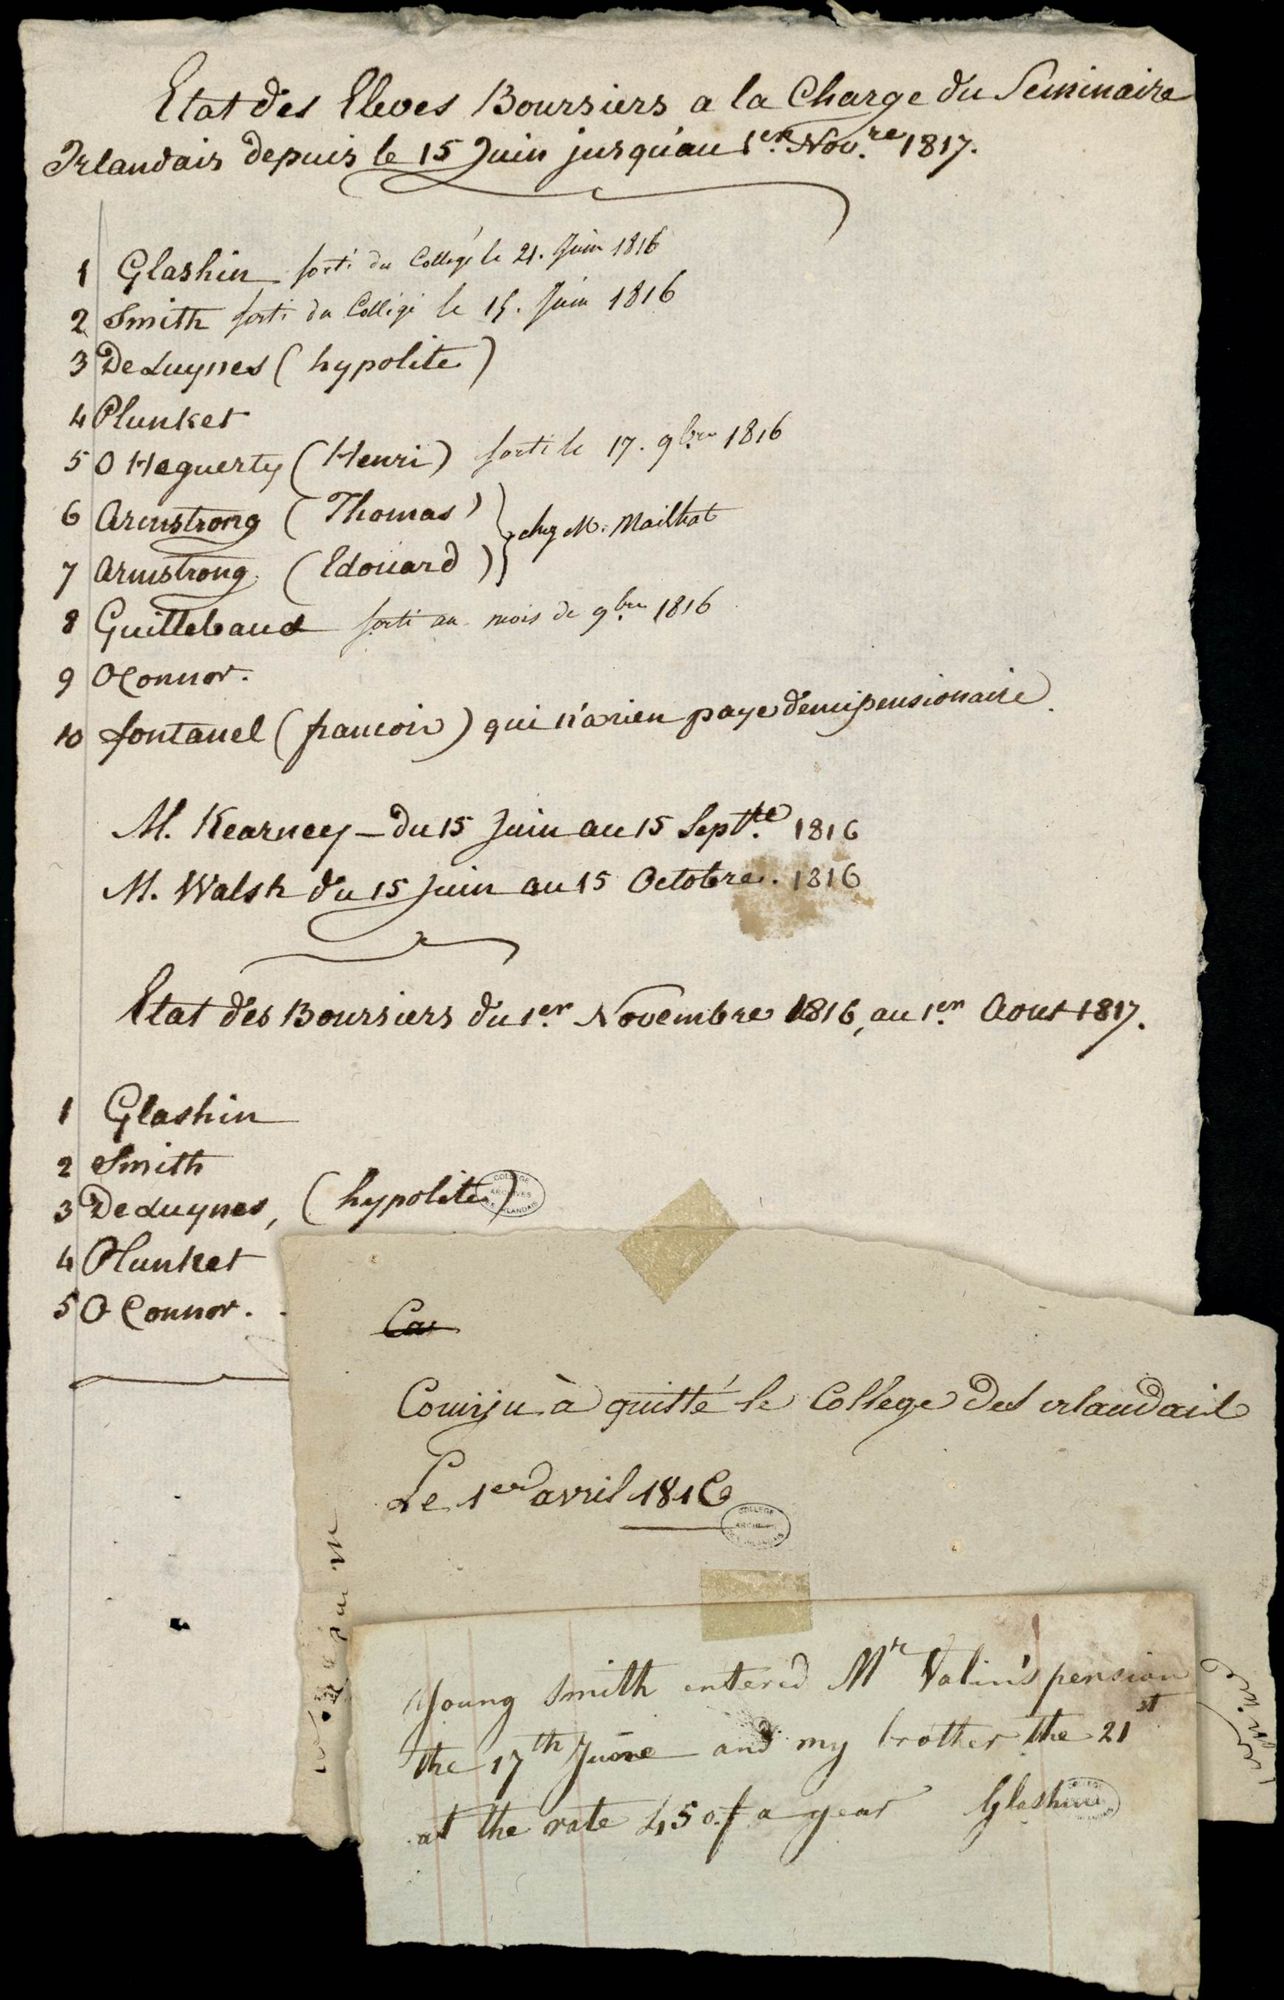 Etat des Eleves Boursiers a la Charge du Seminaire
Irlandais depuis le 15 Juin jusqu'au 1er. Nov.re 1817.
1 Glashin sorti du College le 21. Juin 1816
2 Smith sorti du College le 15. Juin 1816
3 DeLuynes (hypolite)
4 Plunket
5 O Heguerty (Henri) sorti le 17. 9bre 1816
6 Armstrong (Thomas)
7 Armstrong (Edouard) } chez M. Mailhat
8 Guillebaud sorti au mois de 9bre 1816
9 OConnor.
10 fontanel (francois) qui n'a rien paye demipensionaire.
M. Kearney - du 15 Juin au 15 Septbre. 1816
M. Walsh du 15 Juin au 15 Octobre. 1816
Etat des Boursiers du 1er. Novembre 1816, au 1er. Aout 1817.
1 Glashin
2 Smith
3 DeLuynes, (hypolite)
COLLEGE
ARCHIVES
DES IRLANDAIS
4 Plunket
5 O Connor.
Ca
à quitté le College des irlandais
Le 1er avril 1816
COLLEGE
ARCHIVES
DES IRLANDAIS
Young Smith entered Mr Valin's pension
the 17th June and my brother the 21st
at the rate 450.f a year Glashin